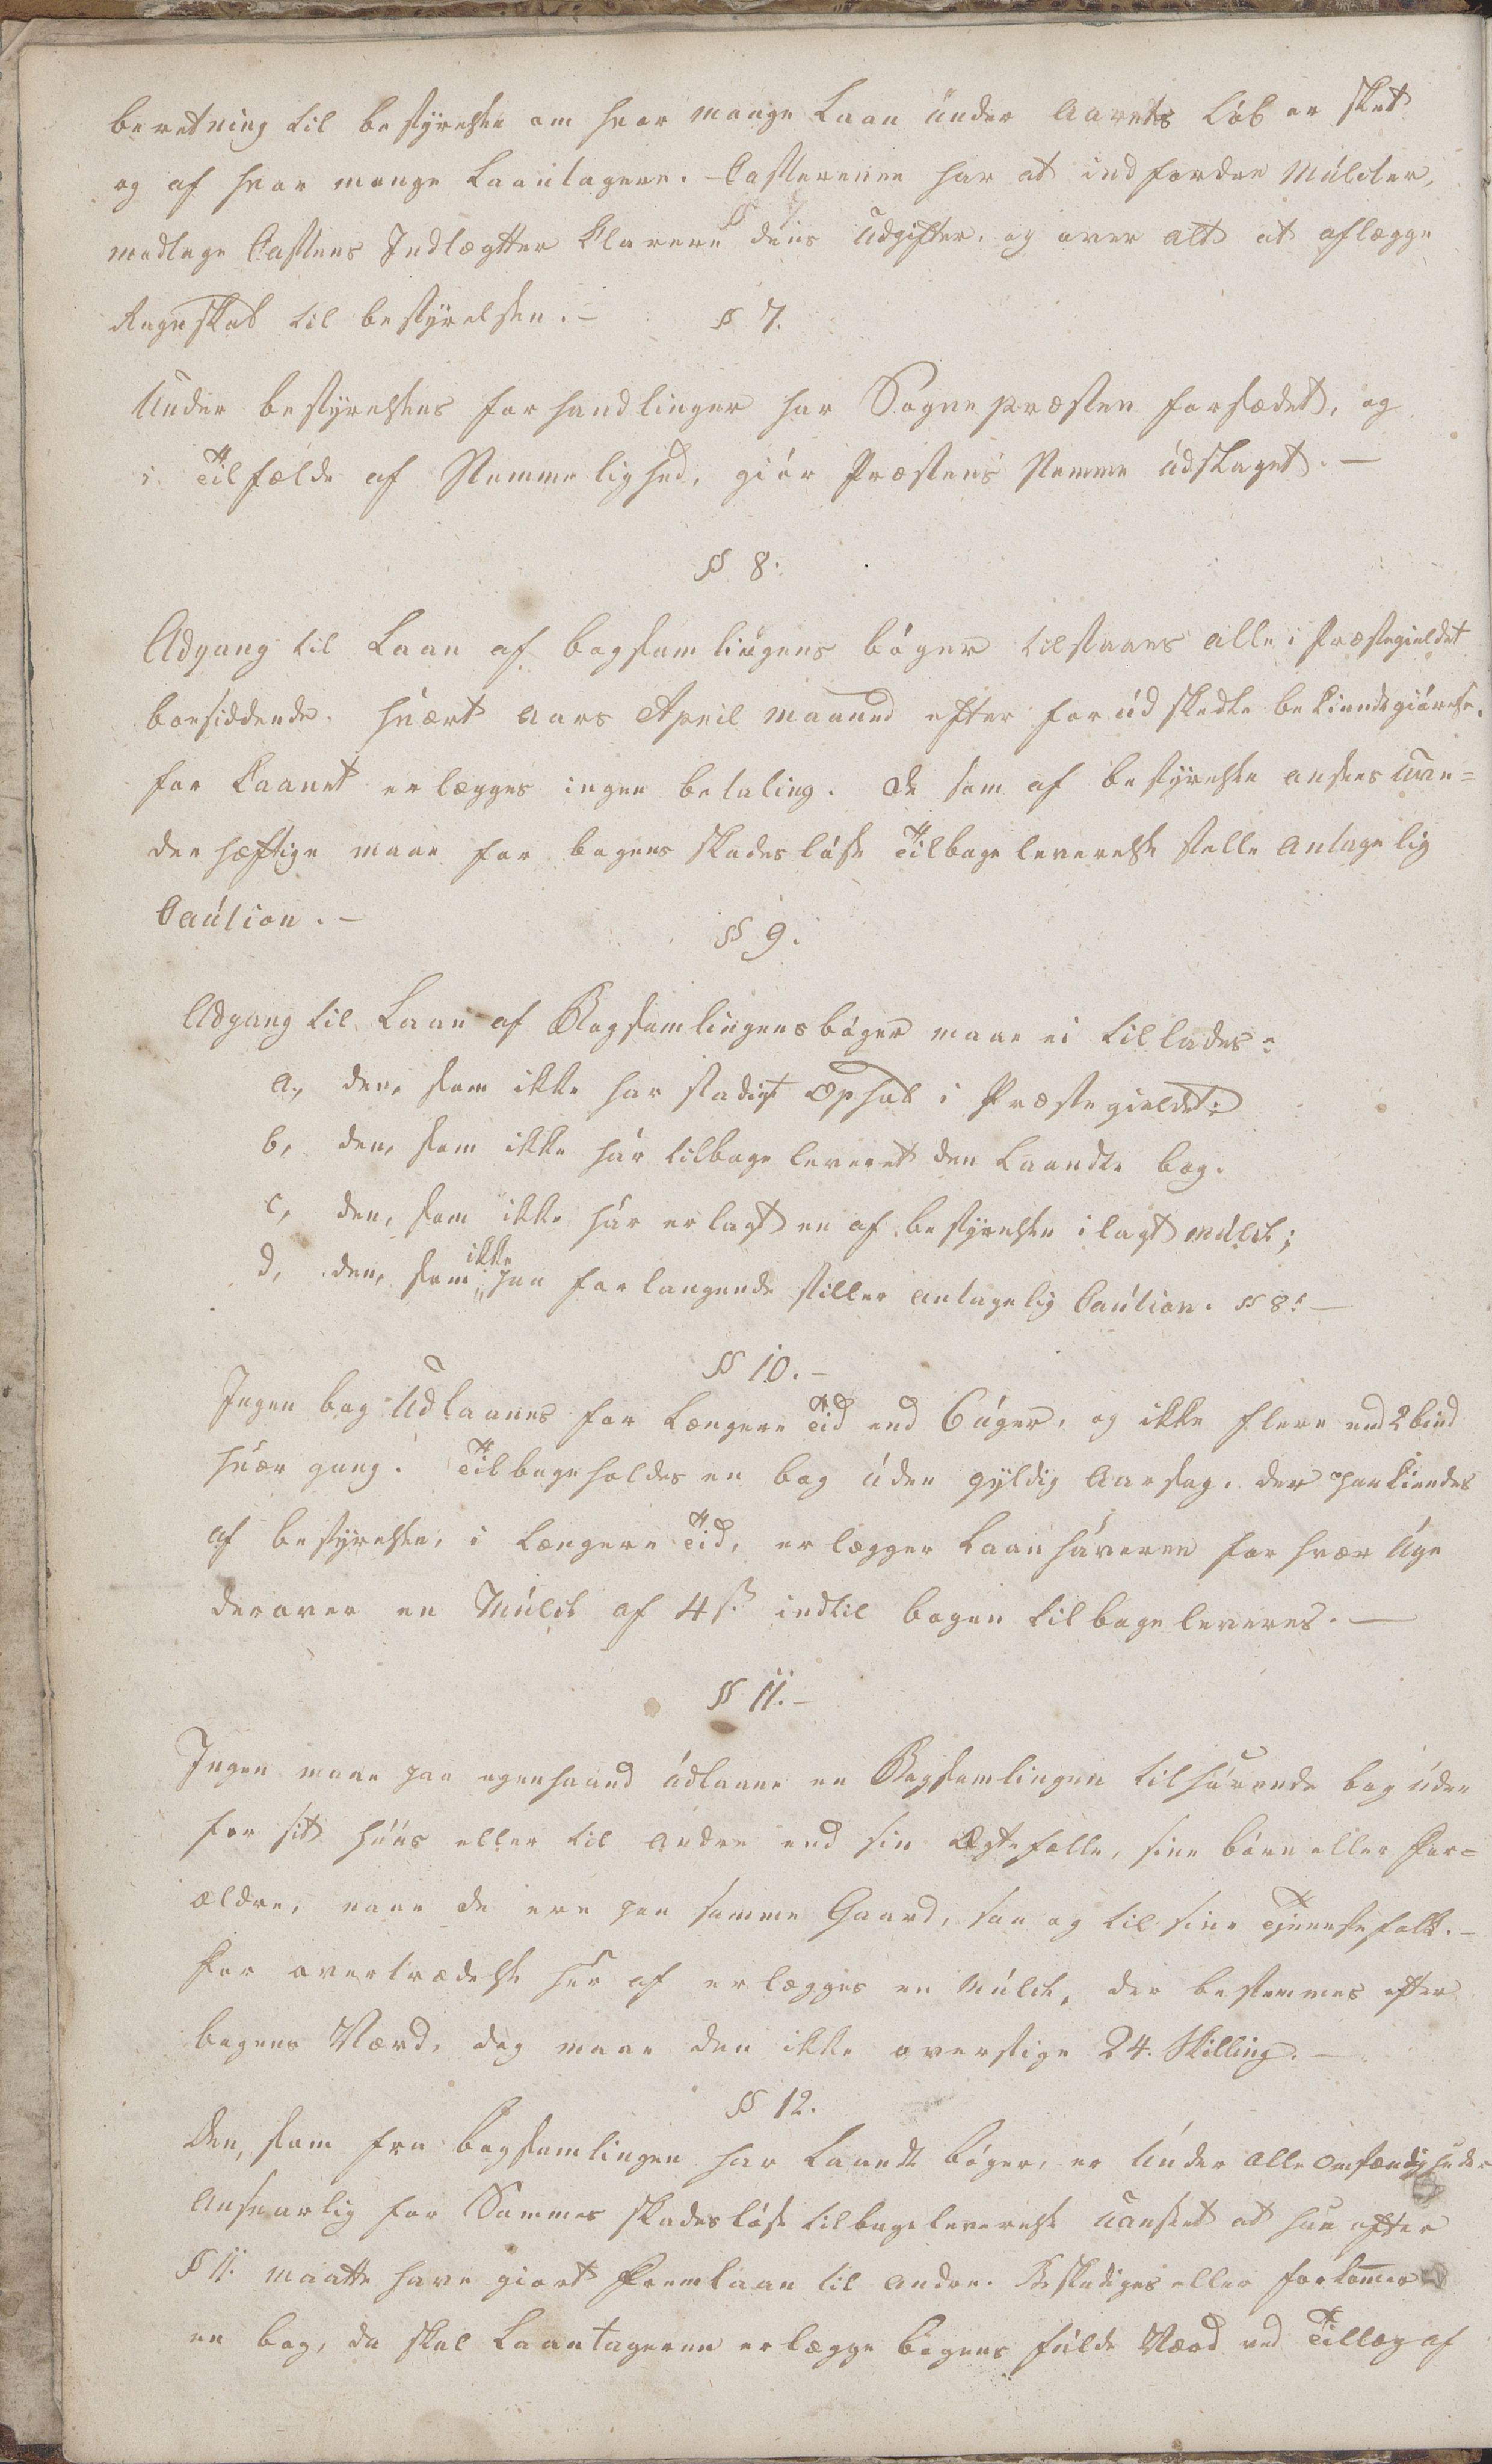 beretning til bestyrelsen om hvor mange Laan under Aarets Løb er skeet
og af hvor mange Laantagere. Cassereren har at indfordre Mulcter,
modtage Cassens Indtægter klarere dens Udgifter, og over alt at aflægge
Regnskab til bestyrelsen. – § 7.
Under bestyrelsens forhandlinger har Sognepræsten forsædet, og
i Tilfælde af Stemmelighed, giør Præstens Stemme udslaget. –
§ 8.
Adgang til Laan af bogsamlingens bøger tilstaaes alle i Præstegieldet
boesiddende. hvært Aars April maaned efter forud skedte bekiendtgiørelse.
for Laanet erlægges ingen betaling. De som af bestyrelsen ansees uvæ=
derhæftige maae for bogens skadesløse Tilbageleverelse stelle antagelig
Caution. –
§ 9.
Adgang til Laan af Bogsamlingens bøger maae ei tillades:
a, den, som ikke har stadigt Ophold i Præstegieldet:
b, den, som ikke har tilbageleveret den Laante bog.
c, den, som ikke har erlagt en af bestyrelsen ilagt mulct;
d, den, som ikke paa forlangende stiller antagelig Caution. § 8: –
§ 10. –
Ingen bog Udlaanes for længere Tid end 6 uger, og ikke flere end 2 bind
hvær gang. Tilbageholdes en bog uden gyldig Aarsag, der paakiendes
af bestyrelsen, i længere Tid, erlægger Laanhaveren for hvær Uge
derover en Mulct af 4 s. indtil bogen tilbageleveres. –
§ 11. –
Ingen maae paa egenhaand udlaane en Bogsamlingen tilhørende bog uden
for sit huus eller til andre end sin Ægtefælle, sine børn eller For=
ældre, naar de ere paa samme Gaard, saa og til sine Tjenestefolk. –
For overtrædelse her af erlægges en mulct, der bestemmes efter
bogens Værd, dog maae den ikke overstige 24. Skilling. –
§ 12.
Den, som fra bogsamlingen har Laant bøger, er Under alle Omstændigheder
Ansvarlig for Sammes skadesløse tilbageleverelse uanseet at han efter
§ 11. maatte have giort Fremlaan til andre. Beskadiges eller forkommer
en bog, da skal Laantageren erlægge bogens fulde Værd ved Tillæg af